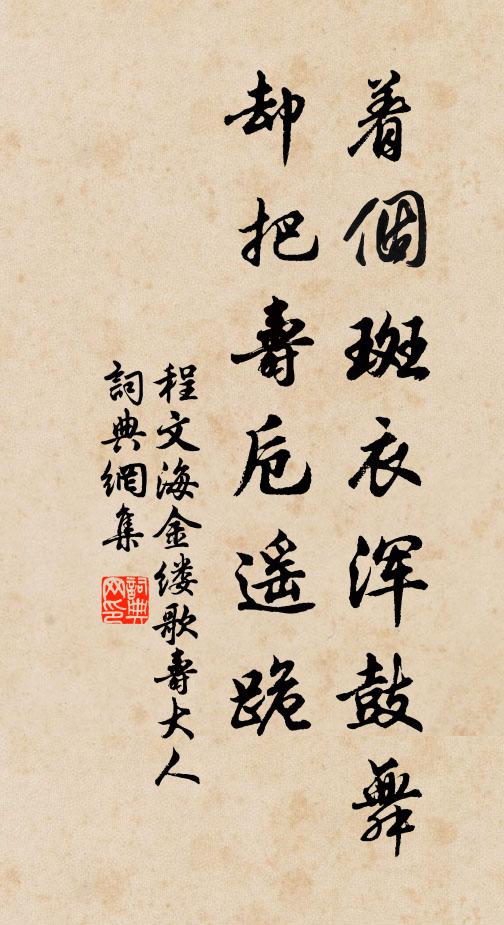 着個斑衣浑鼓舞
却把壽卮遥跪
程文海金缕歌壽大人
詞典網集
詞典
网印